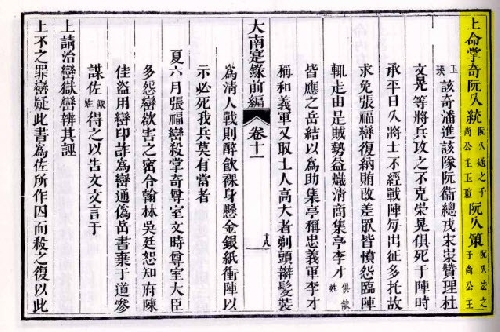 上命掌奇阮久統阮久通之子尚公主玉阮久策阮久法之子尚公主
玉該奇潘進該隊阮衛總戎宋宗管理杜
文晃等將兵攻之不克榮晃俱死于陣時
承平日久將士不經戰陣每出征多托故
求免張福巒復納賄改差衆皆憤怨臨陣
輒走由是賊勢益熾清商集亭李才俱缺姓
皆應之岳結以為助集亭稱忠義軍李才
稱和義軍又取土人高大者剃頭辮髮裝
大南寔錄前編 卷十一 十八
為清人戰則醉飲裸身懸金銀紙衝陣以
示必死我兵莫有當者
夏六月張福巒殺掌奇尊室文時尊室大臣
多怨巒欲害之密令翰林吳廷愆知府陳
佳盜用巒印詐為巒通偽岳書棄于道參
謀佐缺姓得之以告文文言于
上請治巒獄巒辨其誣
上不之罪巒疑此書為佐所作因而殺之復以此